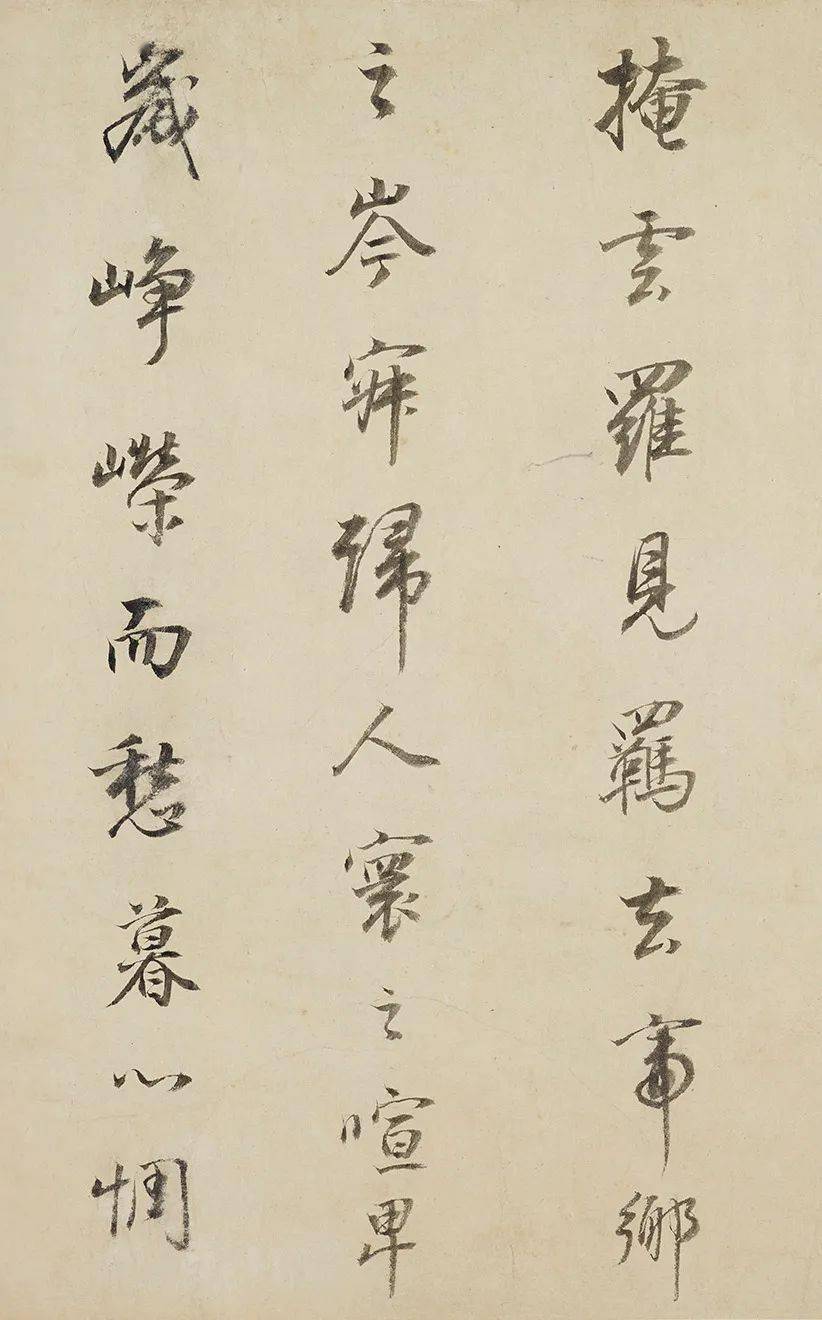 掩雲羅見羈去帝鄉
之岑寂歸人寰之喧卑
歲崢嶸而愁暮心惆